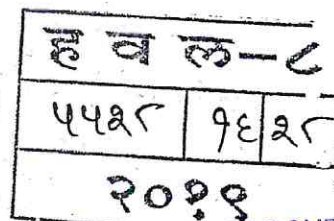 ह व ल - ८
५५२८ १६ २८
२०१९